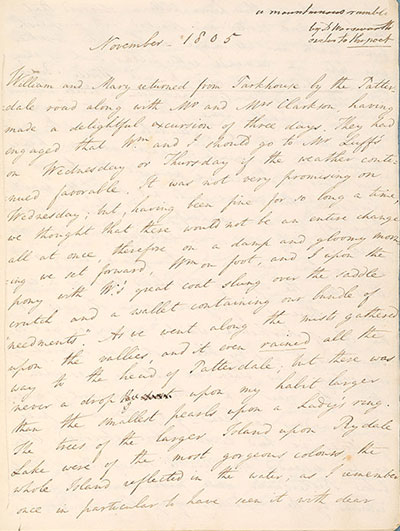 a mountainous ramble
by D Wordsworth
sister to the poet
November - 1805
William and Mary returned from Parkhouse by the Patter-
dale road along with Mr and Mrs Clarkson having
made a delightful excursion of three days. They had
engaged that Wm and I should go to Mr Luff's
on Wednesday or Thursday if the weather conti-
nued favorable. It was not very promising on
Wednesday; but, having been fine for so long a time,
we thought that there would not be an entire change
all at once, therefore on a damp and gloomy morn-
ing we set forward, Wm on foot, and I upon the
pony with W's great coat slung over the saddle
crutch and a wallet containing our bundle of
"needments". As we went along the mists gathered
upon the vallies, and it even rained all the
way to the head of Patterdale; but there was
never a drop upon my habit larger
than the smallest pearls upon a Lady's ring.
The trees of the larger Island upon Rydale
Lake were of the most gorgeous colours the
whole Island reflected in the water, as I remember
once in particular to have seen it with dear